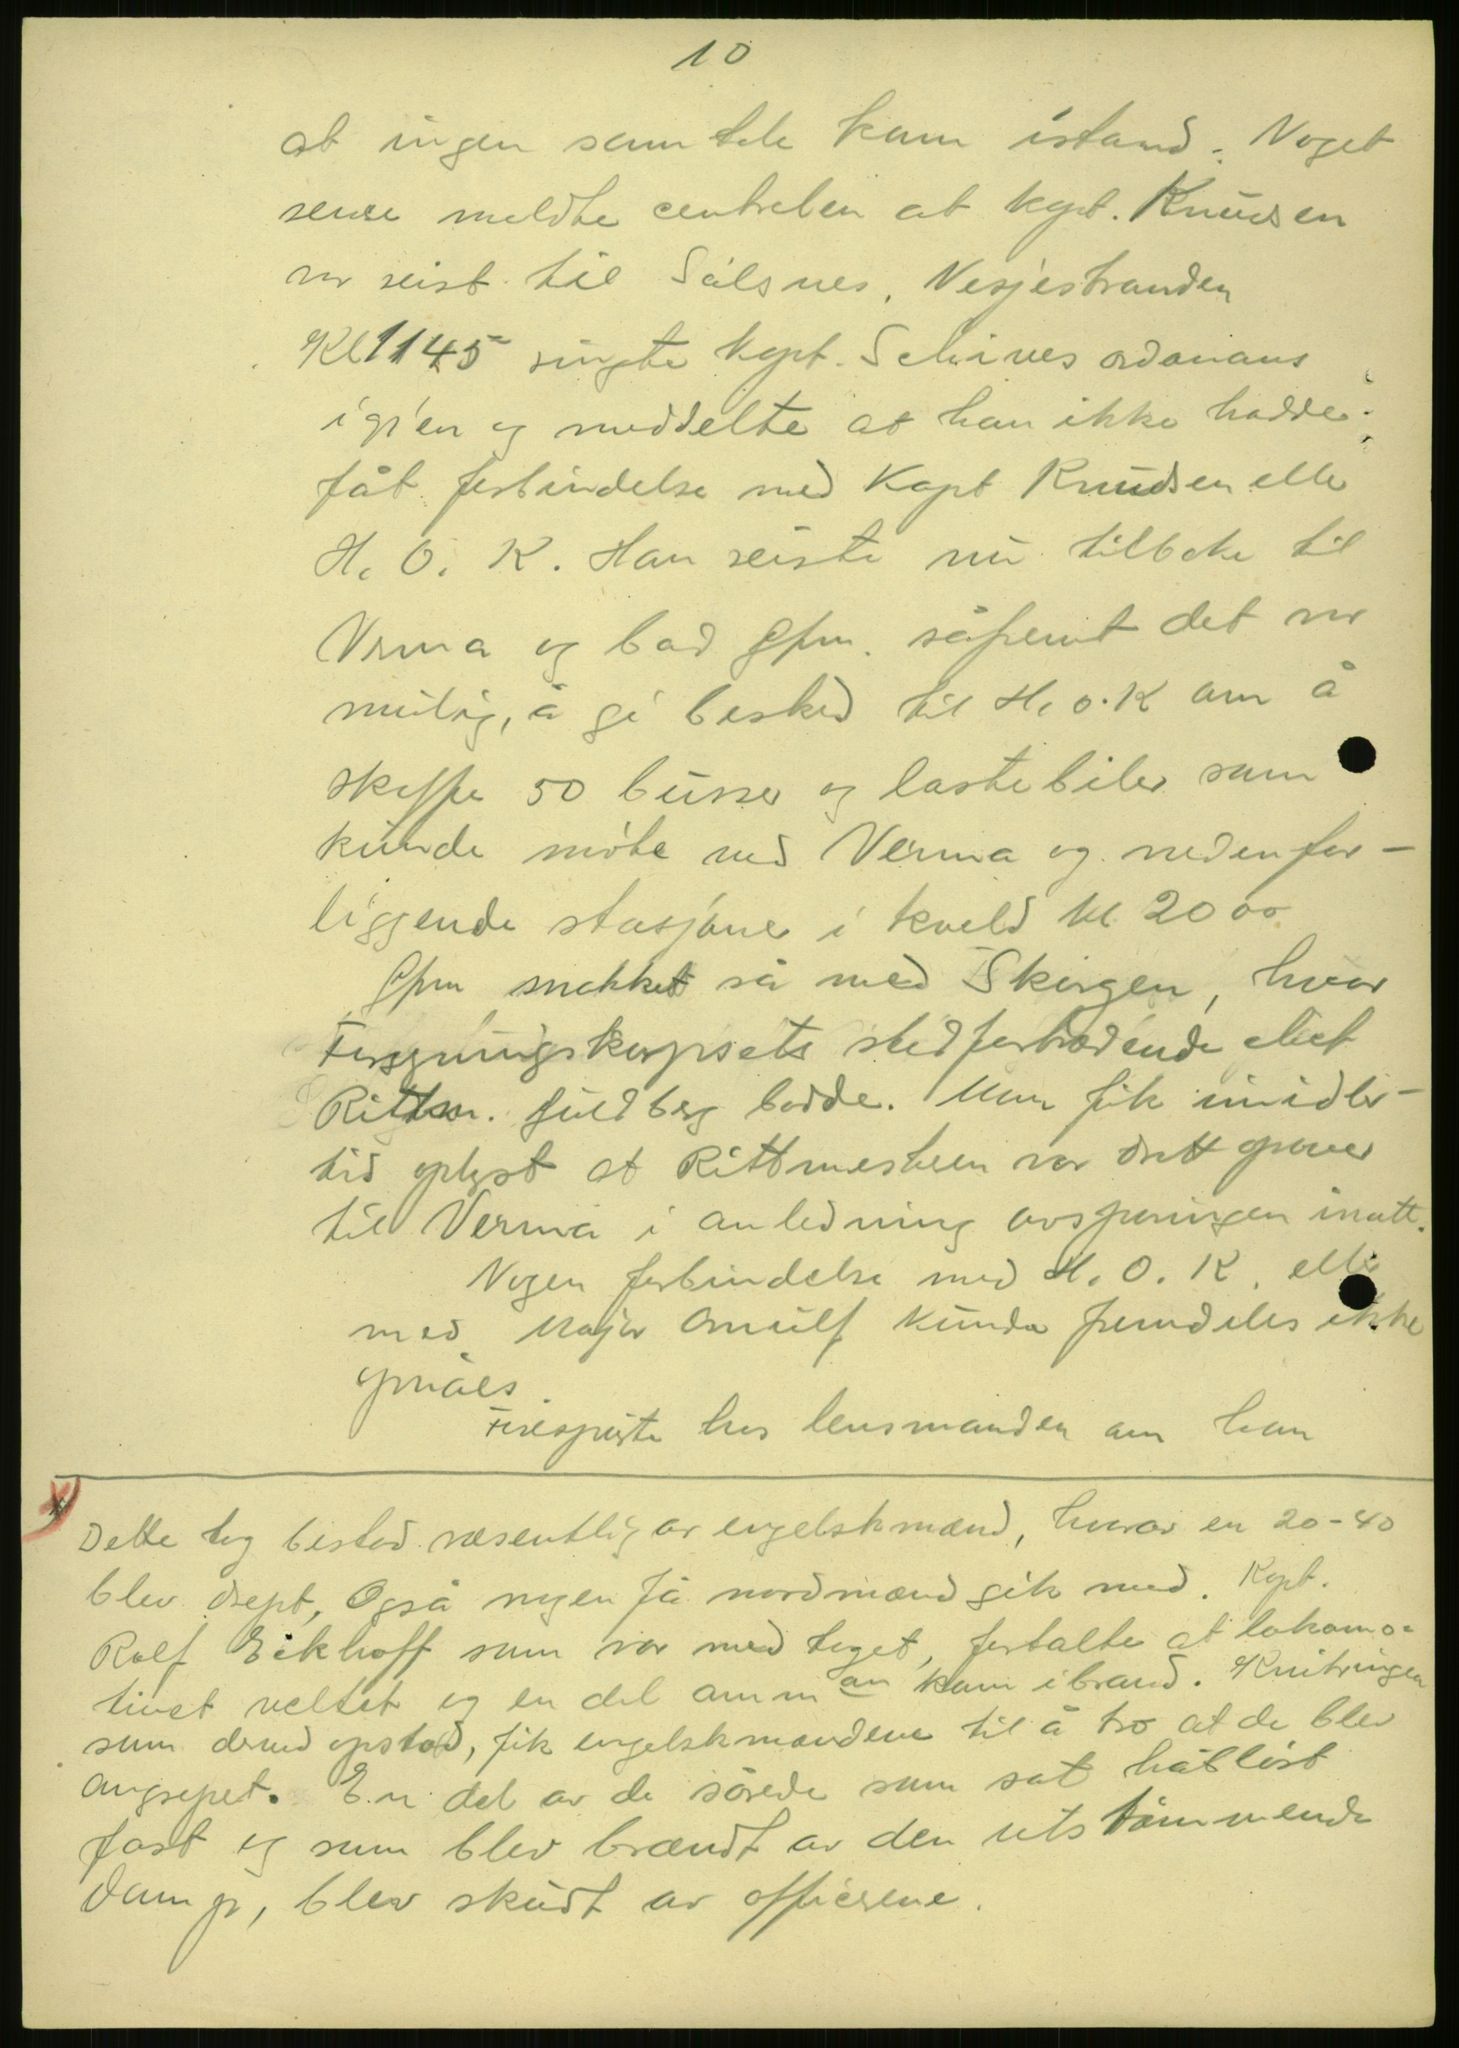 10
at ingen samtale kom istand. Noget
senere meldte centralen at kapt. Knudsen
var reist til Sølsnes, Vesjestranden
Kl 1145 ringte kapt. Schives ordonans
igjen og meddelte at han ikke hadde
fåt forbindelse med Kapt Knudsen eller
H. O. K. Han reiste nu tilbake til
Verma og bad Gfm. såfremt det var
mulig, å gi besked til H. O. K om å
skaffe 50 busser og lastebiler som
kunde møte ved Verma og nedenfor-
liggende stasjoner i kveld kl 2000
Gfm snakket så med Skorgen, hvor
Forsyningskorpsets stedfortrædende chef
Rittm. Guldberg bodde. Man fik imidler-
tid oplyst at Rittmesteren var dratt opover
til Verma i anledning avsporingen inatt.
Nogen forbindelse med H. O. K. eller
med Major Ornulf kunde fremdeles ikke
opnåes.
Forespurte hos lensmanden om han
x
Dette tog bestod væsentlig av engelskmænd, hvorav en 20-40
blev dræpt, Også nogen få nordmænd gik med. Kapt.
Rolf Eckhoff som var med toget, fortalte at lokomo-
tivet veltet og en del amm an kom i brand. Knitringen
som derved opstod, fik engelskmændene til å tro at de blev
angrepet. En del av de sårede som sat håbløst
fast og som blev brændt av den utstrømmende
damp, blev skudt av officerene.